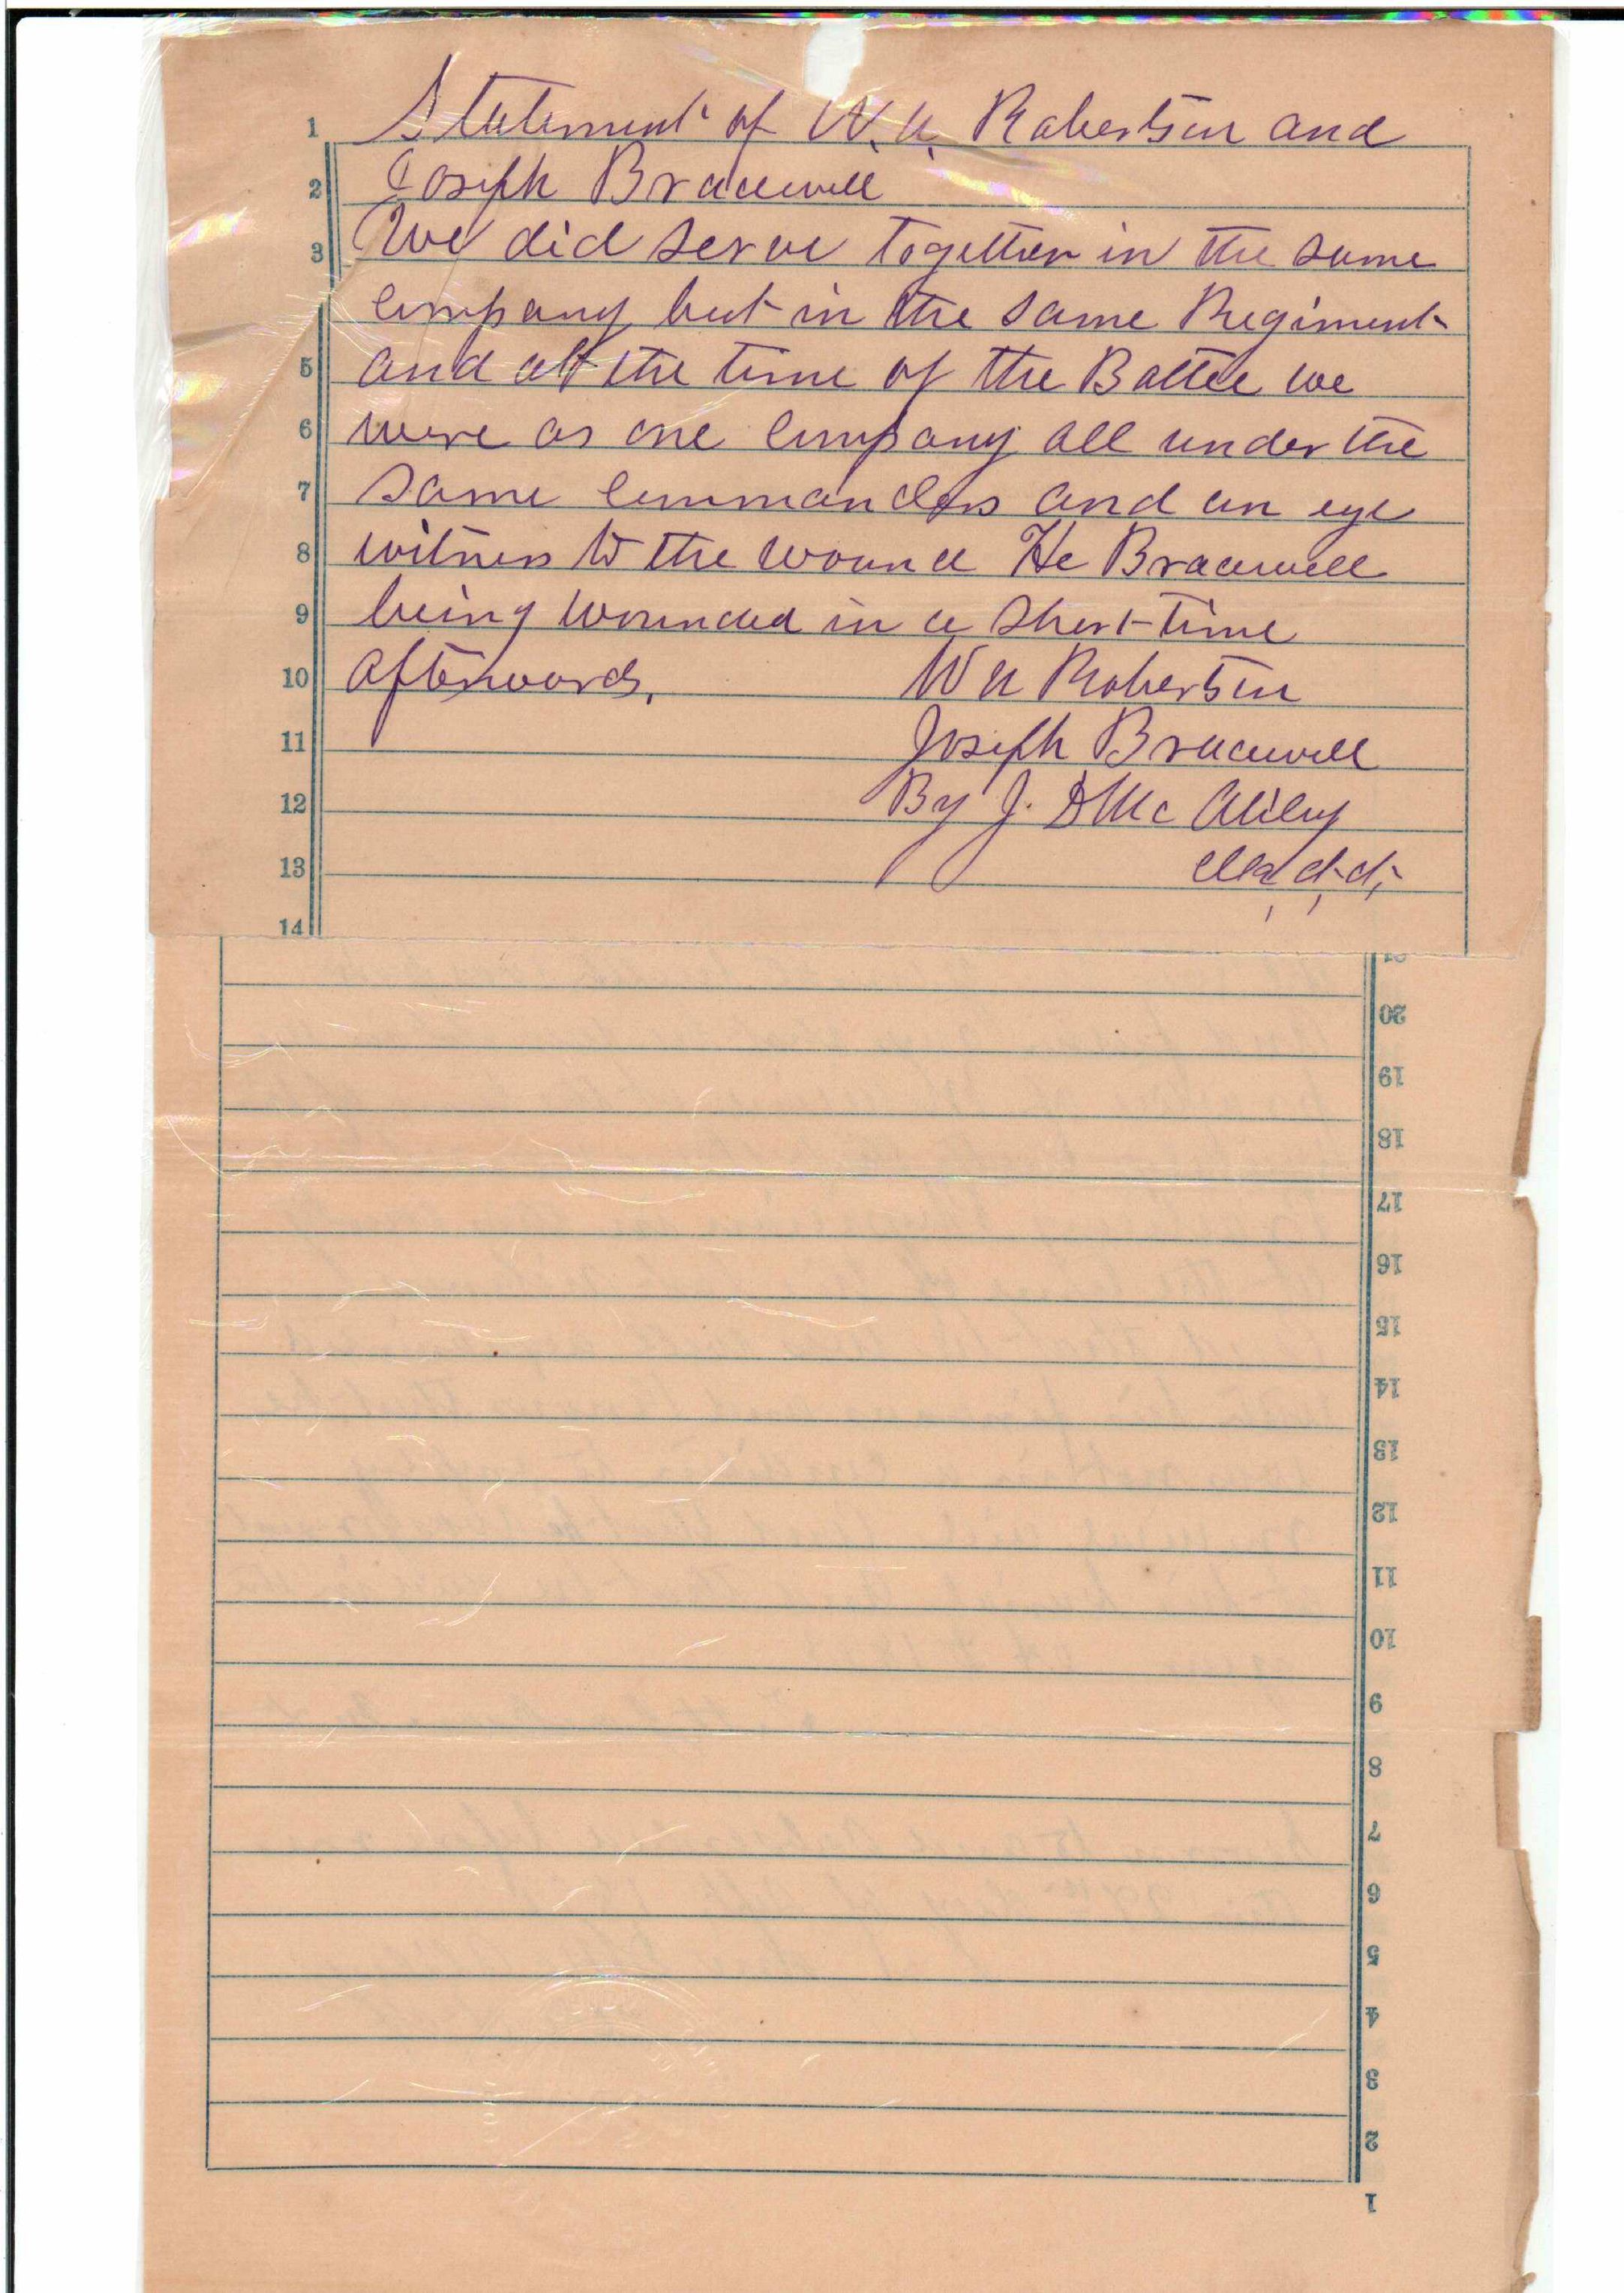 1 Statement of W. U. Robertson and
2 Joseph Bracewell
3 We did serve together in the same
company but in the same Regiment
5 and at the time of the Battle we
6 were as one company all under the
7 same commanders and an eye
8 witness to the wound He Bracewell
9 being wounded in a short time
10 afterwards. W U Robertson
11 Joseph Bracewell
12 By J. D Mc
13
14
21
20
19
18
17
16
15
14
13
12
11
10
9
8
7
6
5
4
3
2
1